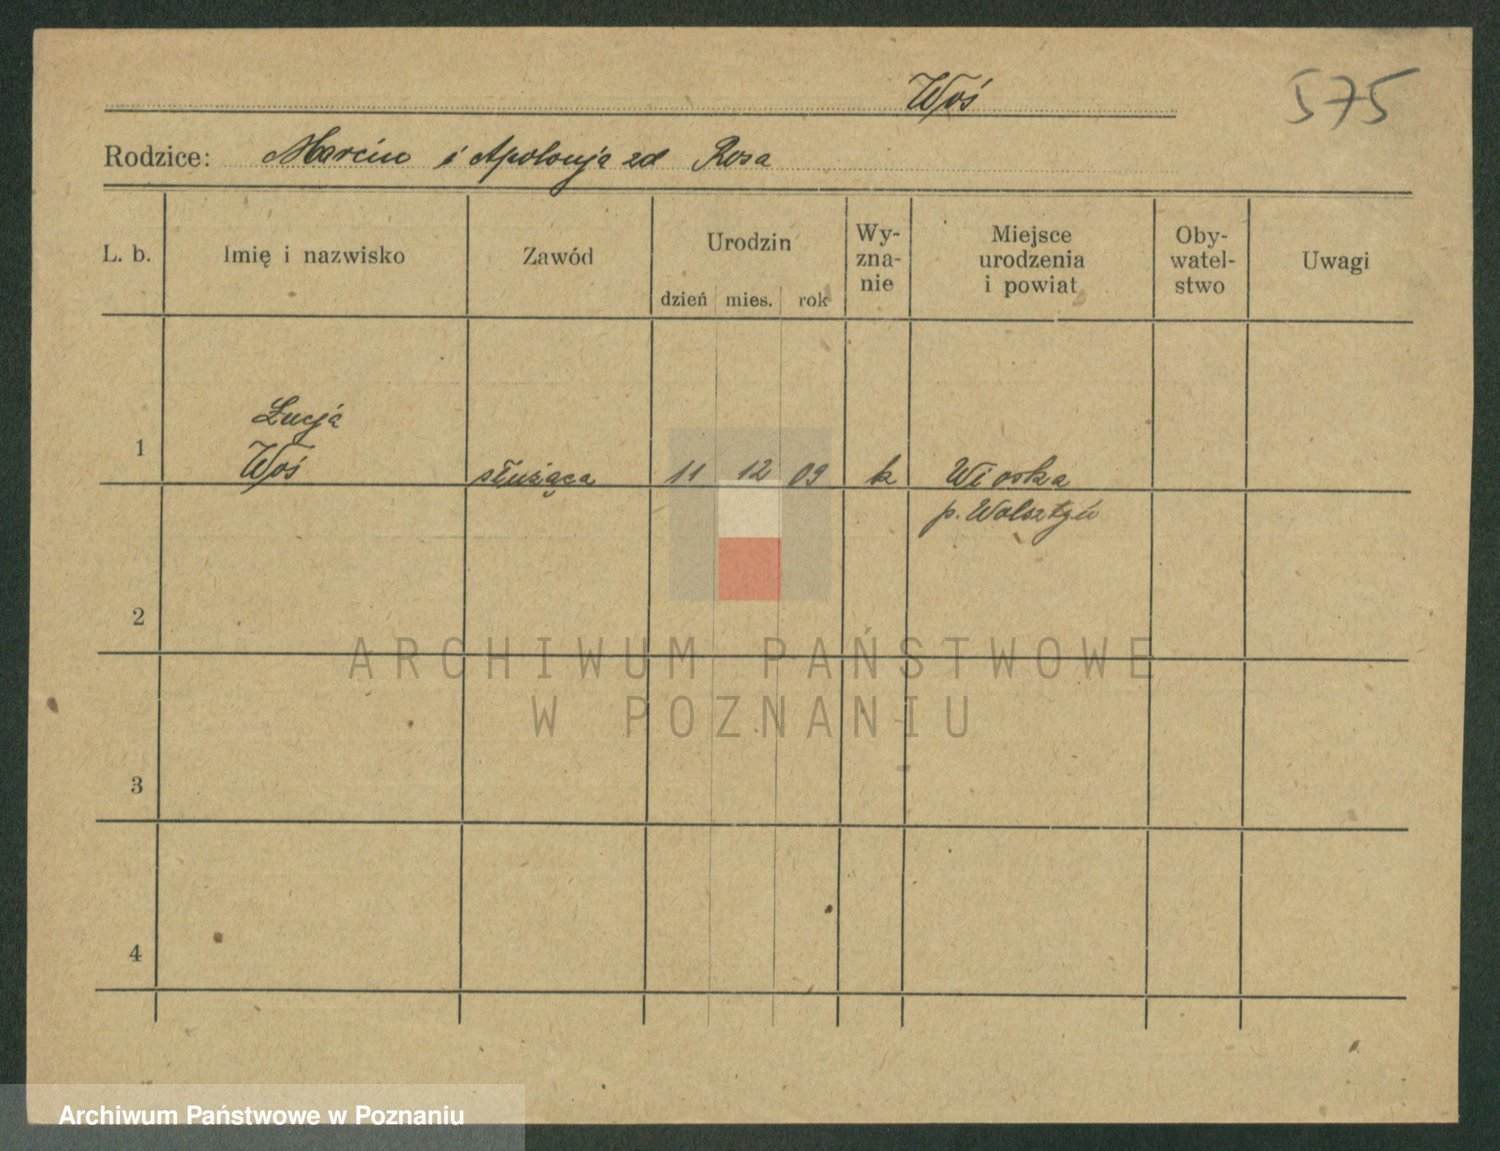 Woś
575
Rodzice: Marcin i Apolonja zd Rosa
L. b.
Imię i nazwisko
Zawód
Urodzin
dzień mies. rok
Wy-
zna-
nie
Miejsce
urodzenia
i powiat
Oby-
watel-
stwo
Uwagi
Łucja
1 Woś służąca 11 12 09 k Wioska
p. Wolsztyn
2
ARCHIWUM PAŃSTWOWE
W POZNANIU
3
4
Archiwum Państwowe w Poznaniu